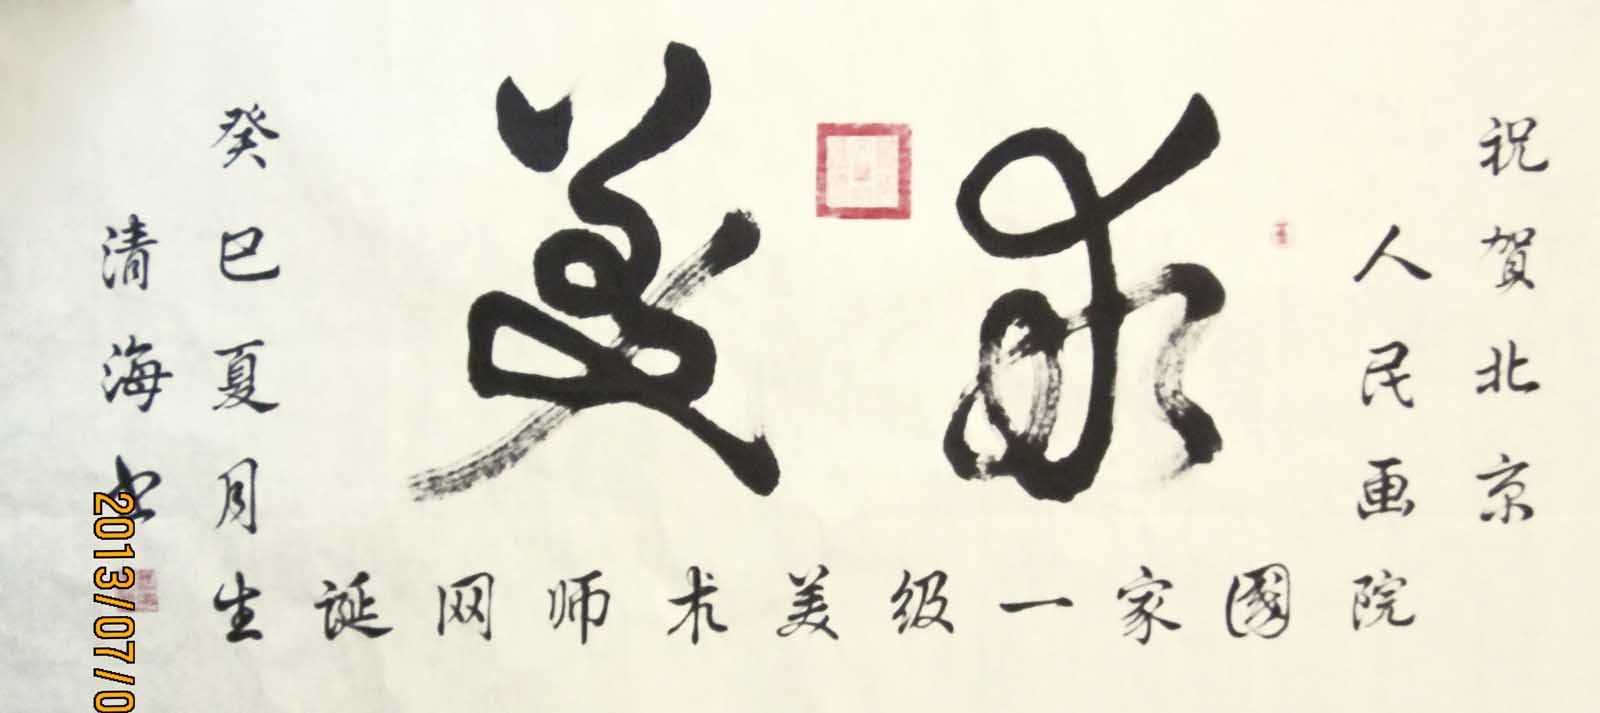 祝賀北京
人民画院
國家一级美术师网诞生
求美
癸巳夏月
清海书
2013/07/0